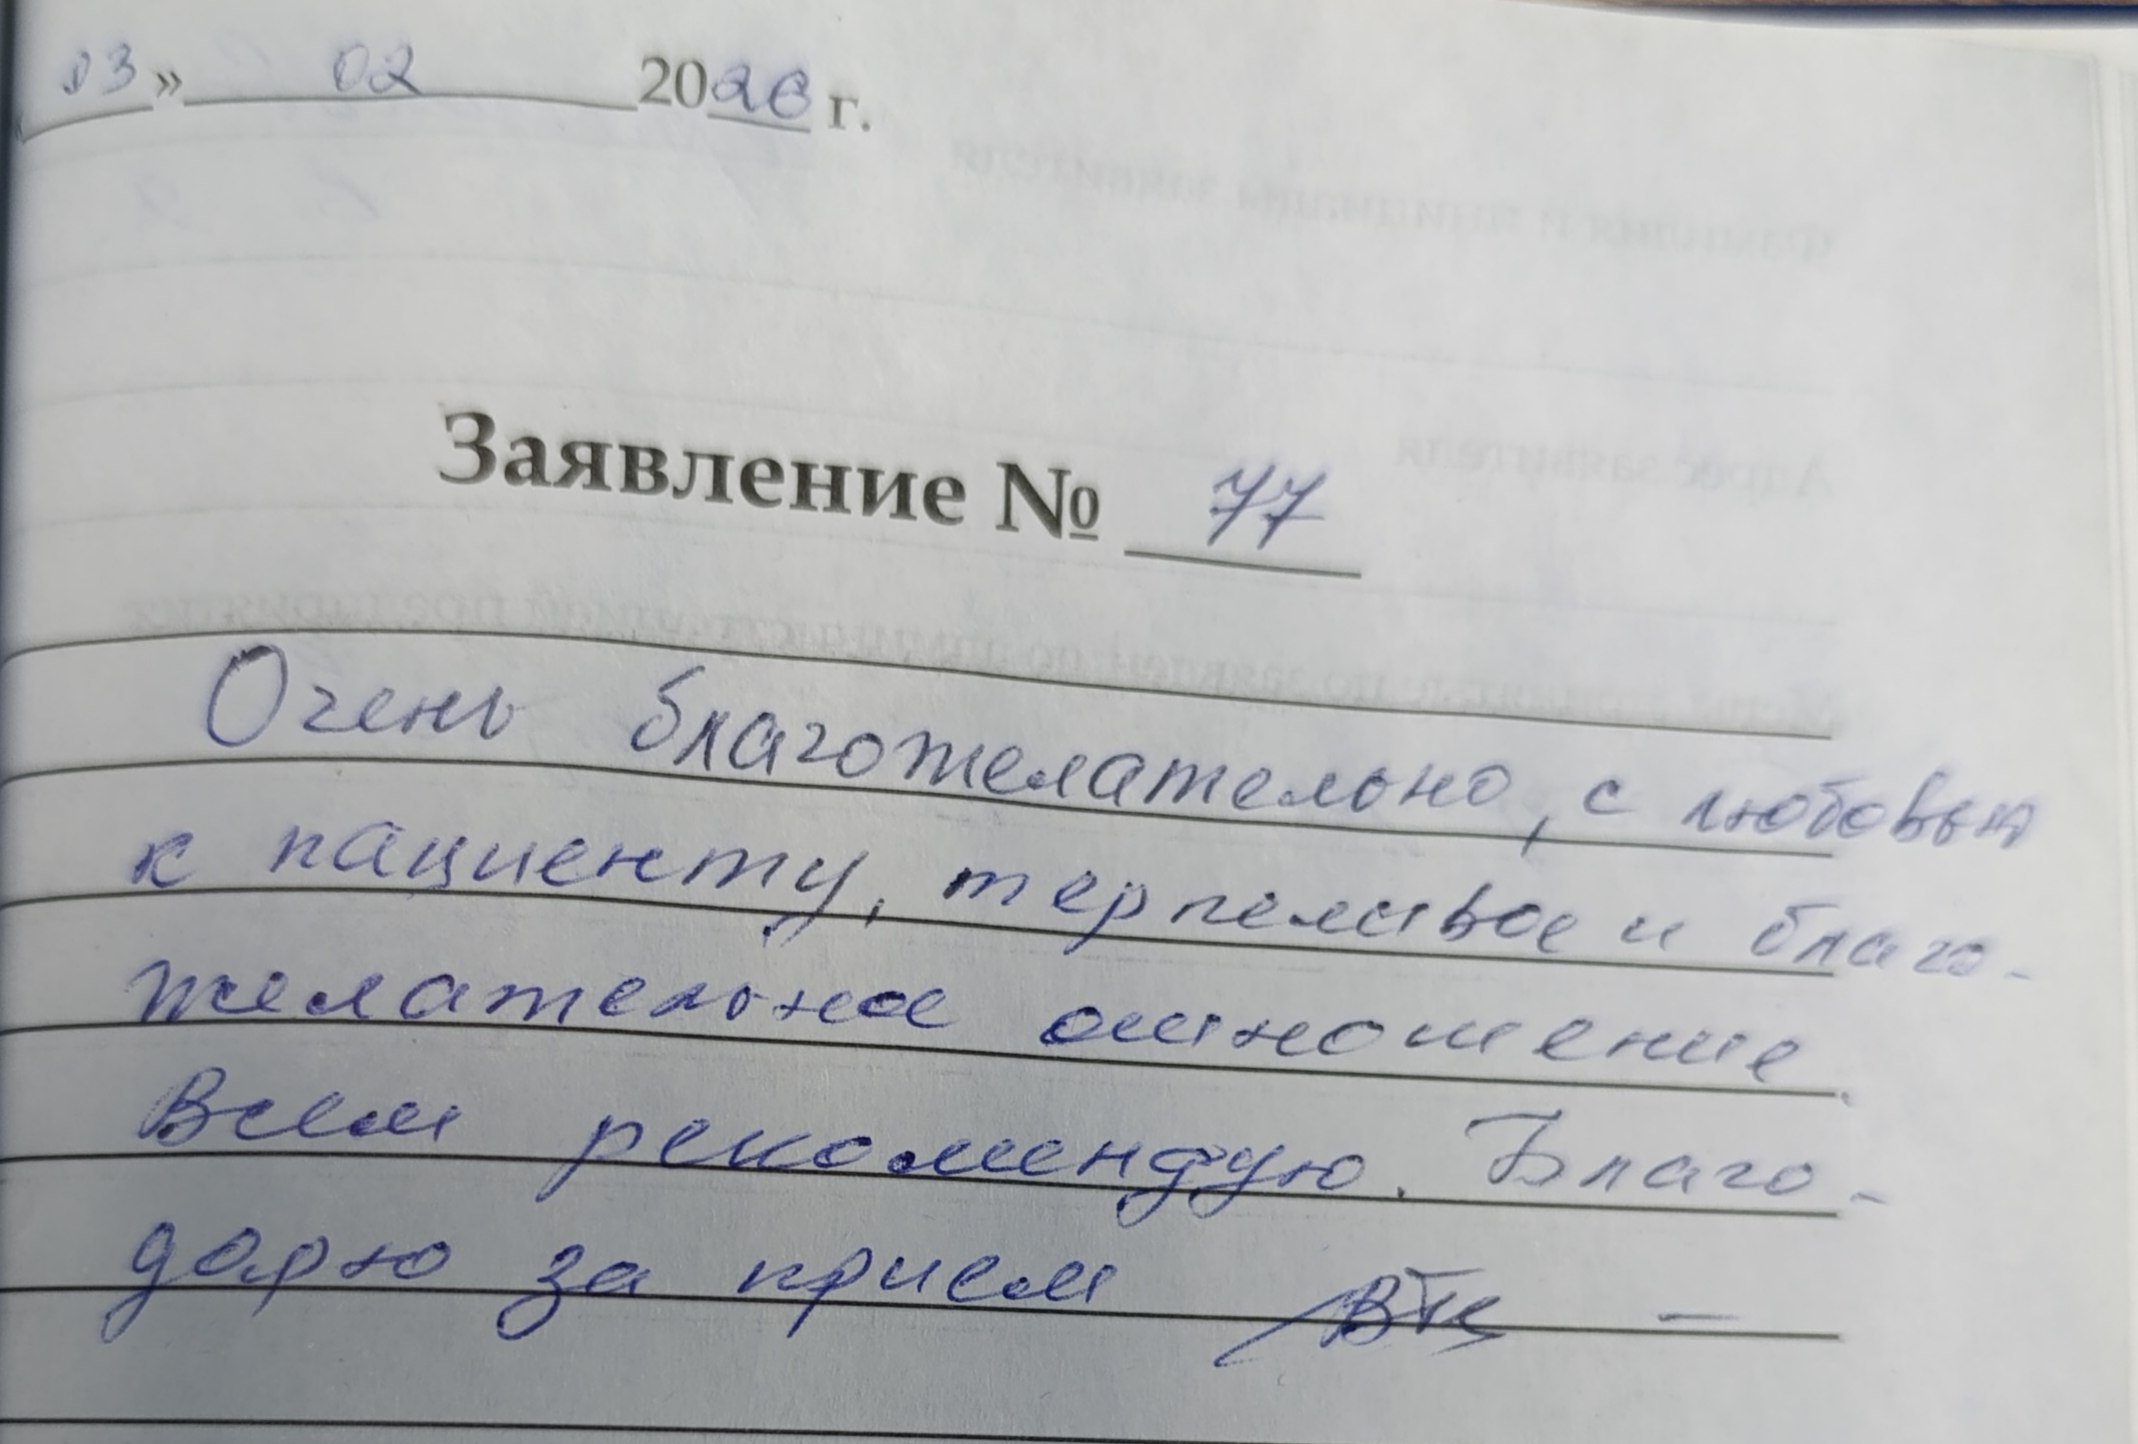 03» 02 2026 г.
Заявление № 77
Очень благожелательно, с любовью
к пациенту, терпеливое и благо-
желательное отношение.
Всем рекомендую. Благо-
дорю за прием